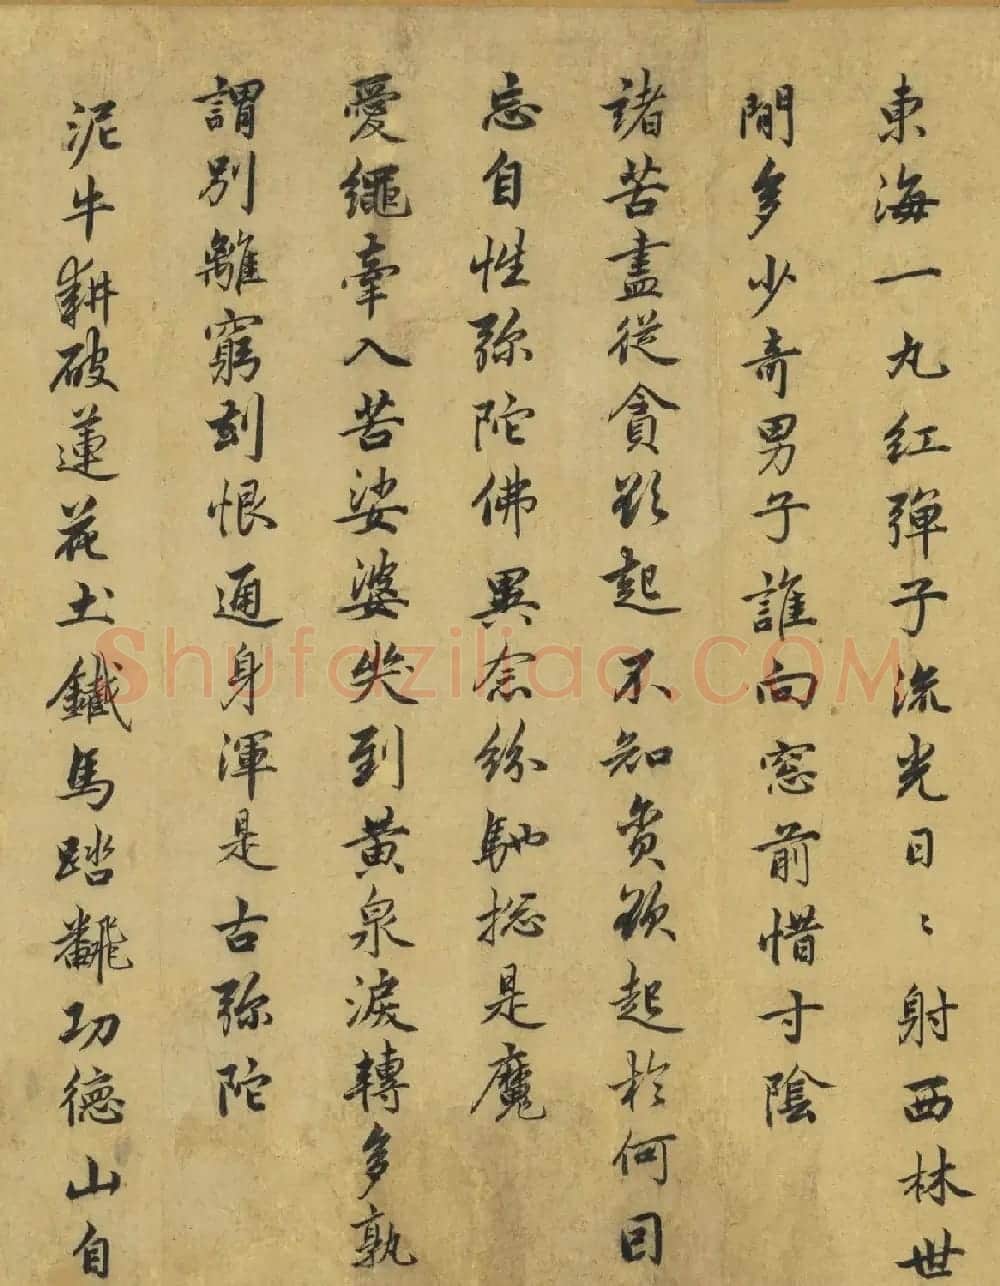 東海一丸紅彈子流光日〻射西林世
間多少奇男子誰向窓前惜寸陰
諸苦盡從貪欲起不知貪欲起於何因
忘自性弥陀佛異念紛馳捴是魔
愛繩牽入苦娑婆哭到黄泉淚轉多孰
謂別離窮刻恨通身渾是古弥陀
泥牛耕破蓮花土鐵馬踏飜功德山自
Shufaziliao.COM